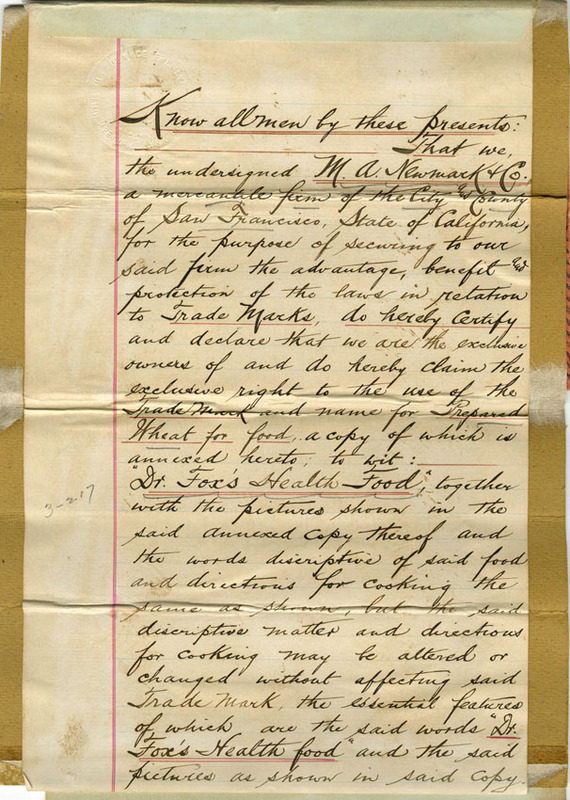 Know all men by these presents:
That we,
the undersigned M. A. Newmark & Co.
a mercantile firm of the City and County
of San Francisco, State of California,
for the purpose of securing to our
said firm the advantage, benefit and
protection of the laws in relation
to Trade Marks, do hereby Certify
and declare that we are the exclusive
owners of and do hereby claim the
exclusive right to the use of the
Trade Mark and name for Prepared
Wheat for food, a copy of which is
annexed hereto, to wit:
"Dr. Fox's Health Food", together
with the pictures shown in the
said annexed copy thereof and
the words discriptive of said food
and directions for cooking the
same as shown, but the said
discriptive matter and directions
for cooking may be altered or
changed without affecting said
Trade Mark, the essential features
of which are the said words "Dr.
Fox's Health food" and the said
pictures as shown in said copy.
3-217